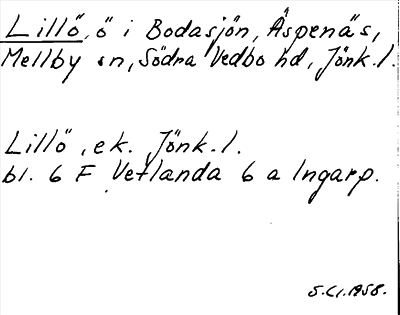 Lillö, ö i Bodasjön, Äspenäs,
Mellby sn, Södra Vedbo hd, Jönk.l.
Lillö, ek. Jönk.l.
bl. 6 F Vetlanda 6 a Ingarp.
1958.